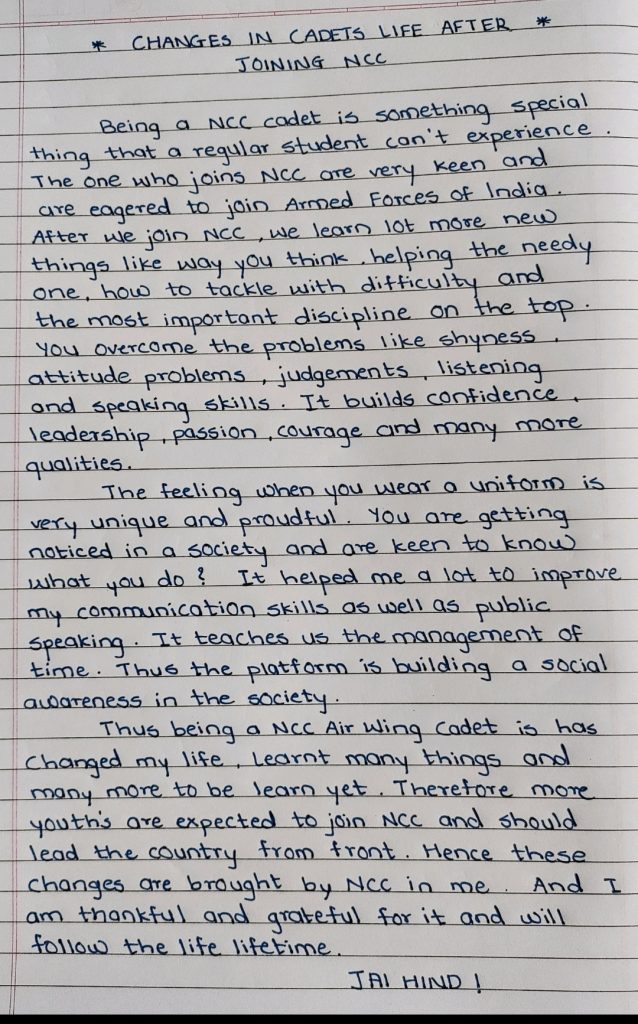 * CHANGES IN CADETS LIFE AFTER *
JOINING NCC
Being a NCC cadet is something special
thing that a regular student can't experience.
The one who joins NCC are very keen and
are eagered to join Armed Forces of India.
After we join NCC, we learn lot more new
things like way you think, helping the needy
one, how to tackle with difficulty and
the most important discipline on the top.
You overcome the problems like shyness,
attitude problems, judgements, listening
and speaking skills. It builds confidence,
leadership, passion, courage and many more
qualities.
The feeling when you wear a uniform is
very unique and proudful. You are getting
noticed in a society and are keen to know
what you do? It helped me a lot to improve
my communication skills as well as public
speaking. It teaches us the management of
time. Thus the platform is building a social
awareness in the society.
Thus being a NCC Air Wing Cadet is has
changed my life, Learnt many things and
many more to be learn yet. Therefore more
youth's are expected to join NCC and should
lead the country from front. Hence these
changes are brought by NCC in me. And I
am thankful and grateful for it and will
follow the life lifetime.
JAI HIND!